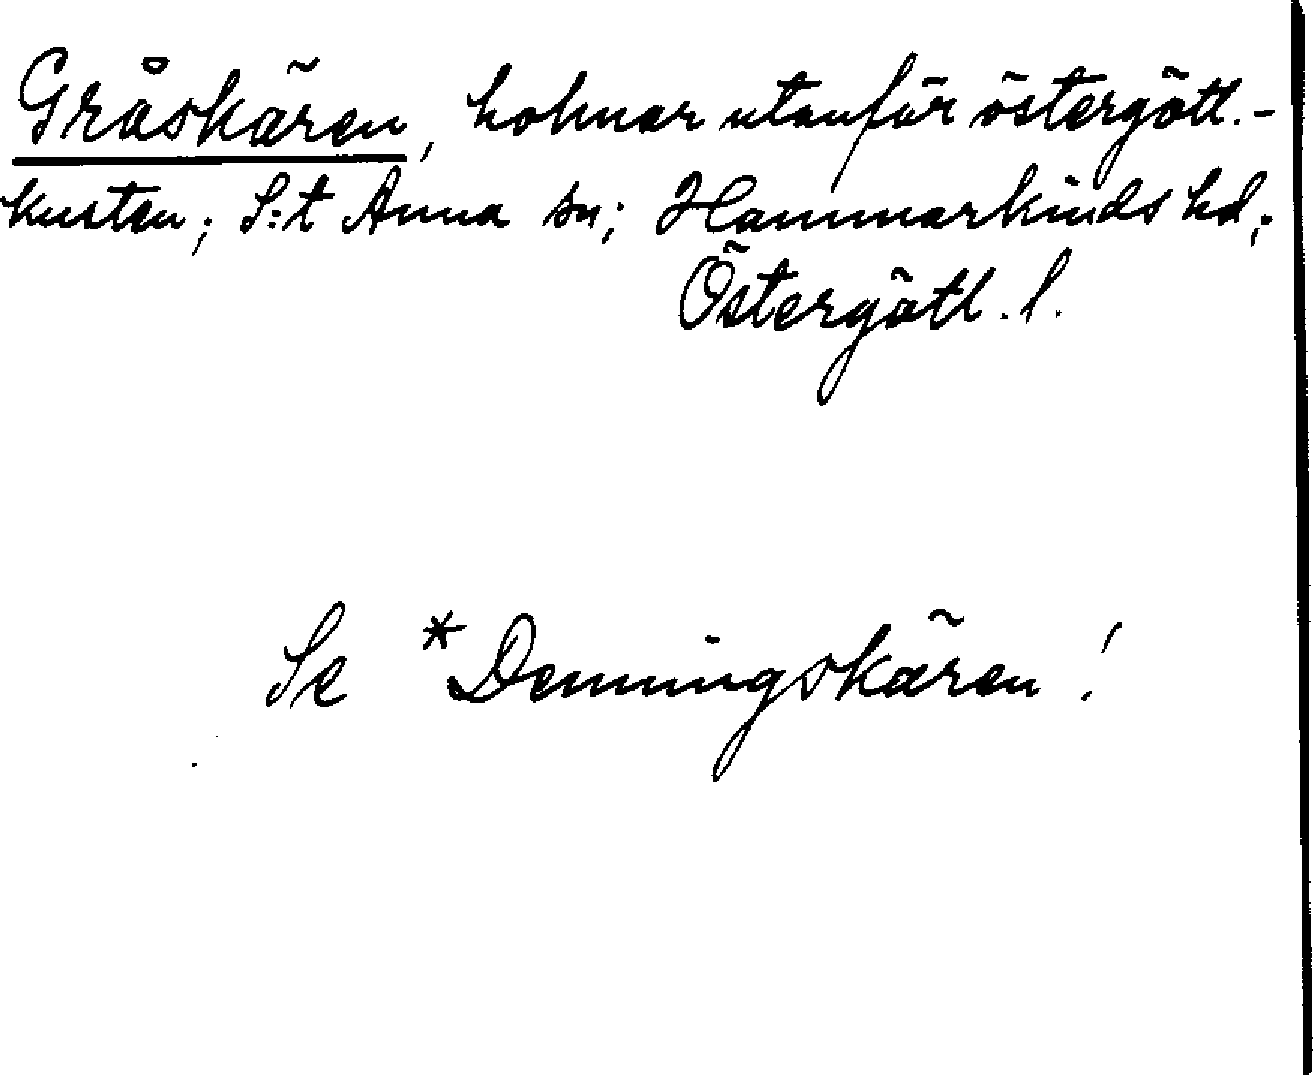 Gråskären, holmar utanför östergötl.-
kusten; S:t Anna sn; Hammarkinds hd,;
Östergötl. l.
Se *Denningskären!